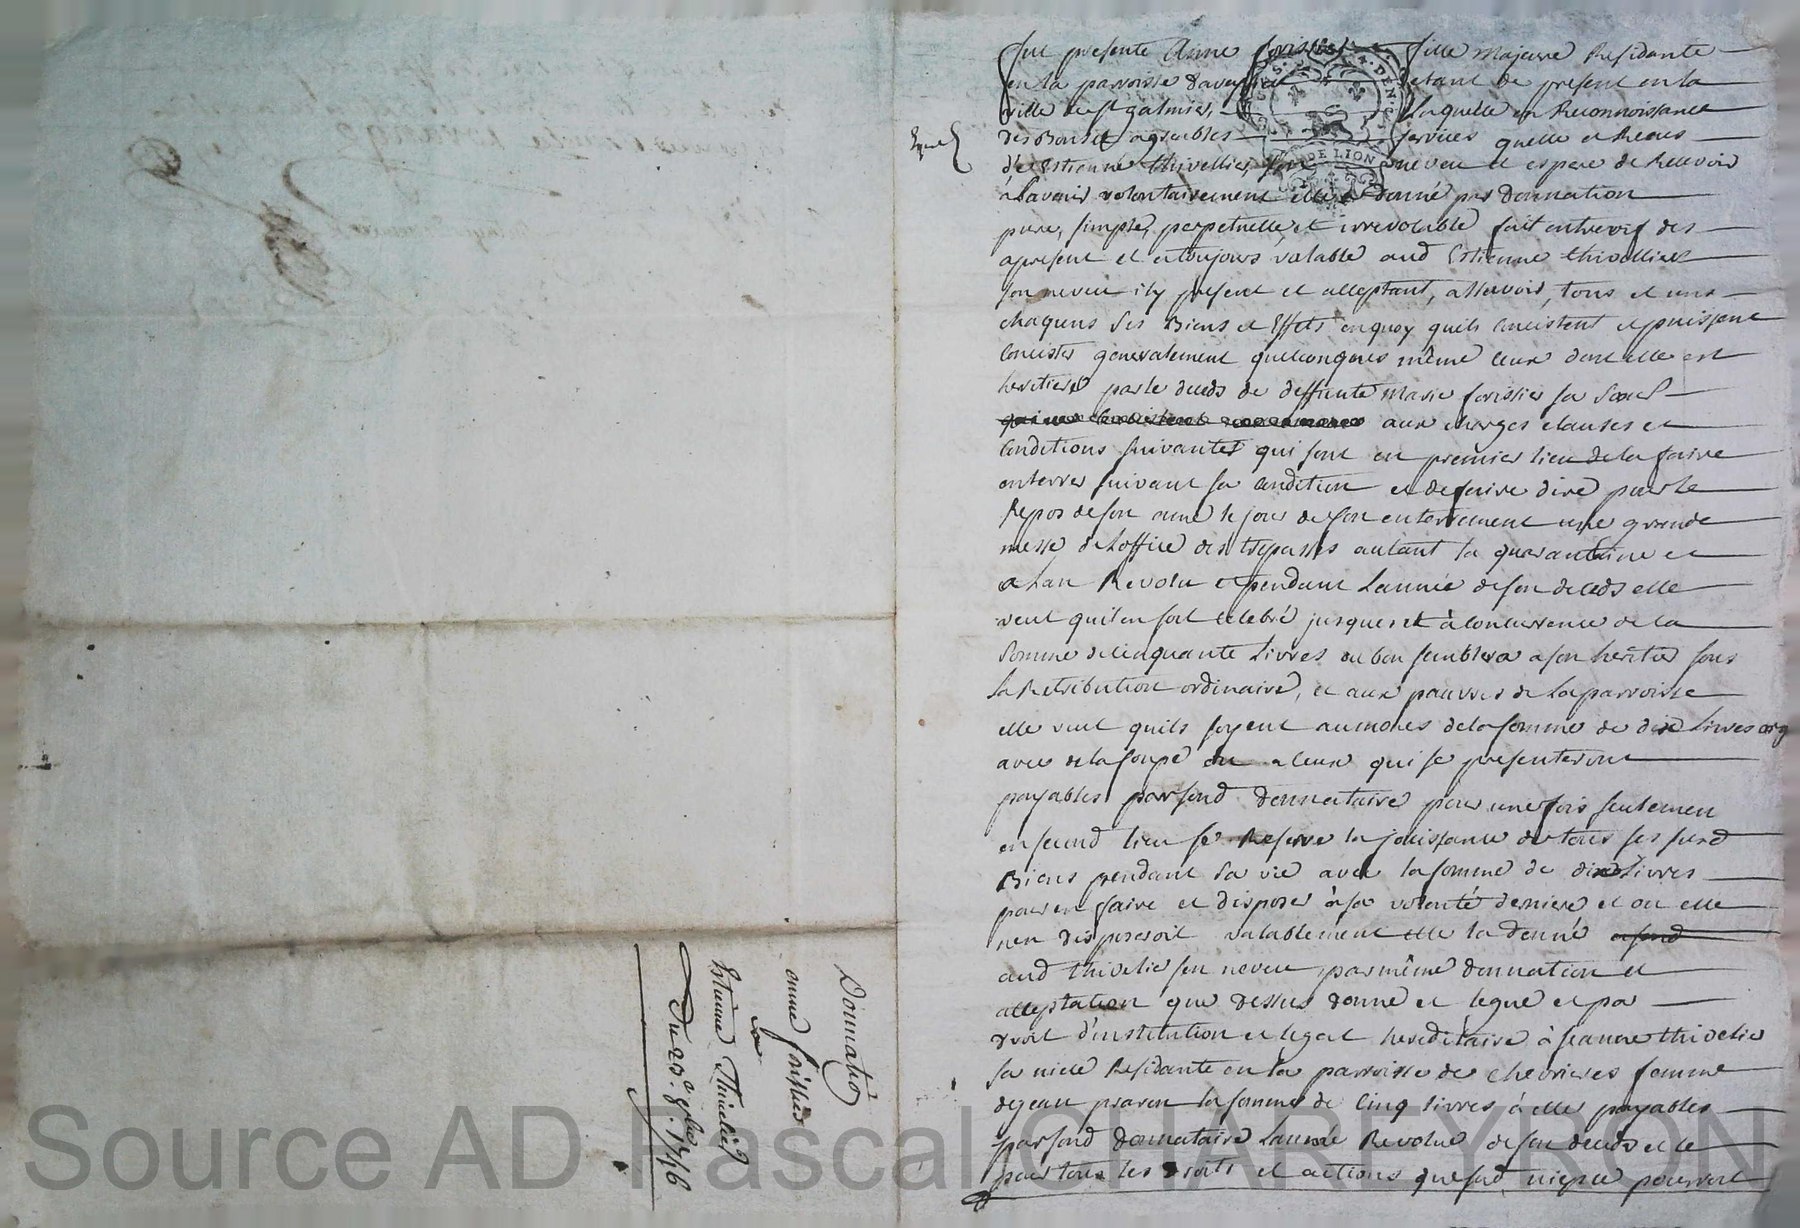 fut presente Anne forissier fille majeure Residante
en la parroisse d'aveysieu etant de present en la
ville de st galmier, Laquelle en Reconnoissance
des Bons et agreables services quelle a Recus
de Estienne thivellier son neveu et espere de Recevoir
a Lavenir volontairement elle a donné par donnation
pure, simple, perpetuelle, et irrevocable fait entrevif des
apresent et atoujours valable aud Estienne thivellier
son neveu icy present et acceptant, assavoir, tous et uns
chaquns ses Biens et Effets en quoy quils concistent et puissent
concister generalement quelconques même ceux dont elle est
heritiere par le deceds de deffunte marie forissier sa sœur
aux charges clauses et
Conditions suivantes qui sont en premier lieu de la faire
enterrer suivant sa condition et de faire dire pour le
Repos de son ame le jour de son enterrement une grande
messe de L'office des trepassés autant la quarantaine et
a Lan Revolu et pendant L'année de son deceds elle
veut quil en soit celebré jusques et à concurrence de la
somme de cinquante Livres ou bon semblera a son heritier sous
La Retribution ordinaire, et aux pauvres de la parroisse
elle veut quils soyent aumonés de la somme de dix Livres
avec de la soupe a ceux qui se presenteront
payables par sond donnataire pour une fois seulemen
en second lieu se Reserve la jouissance de tous ses susd
Biens pendant sa vie avec la somme de dix Livres
pour en faire et disposer à sa volonté derniere et ou elle
nen disposeroit valablement elle la donné
aud thivelier son neveu par même donnation et
acceptation que dessus donne et legue et pa
droit d'institution et legat hereditaire à jeanne thivelier
sa niece Residante en la parroisse de chevrieres femme
de jean la somme de cinq livres à elle payables
par sond donnataire L'année Revolue de son deceds et ce
pour tous les droits et actions que sad niepce pourroit
Donnation
anne forissier
a
Estienne Thivelier
Du 1746
Source AD Pascal CHARLEYRON